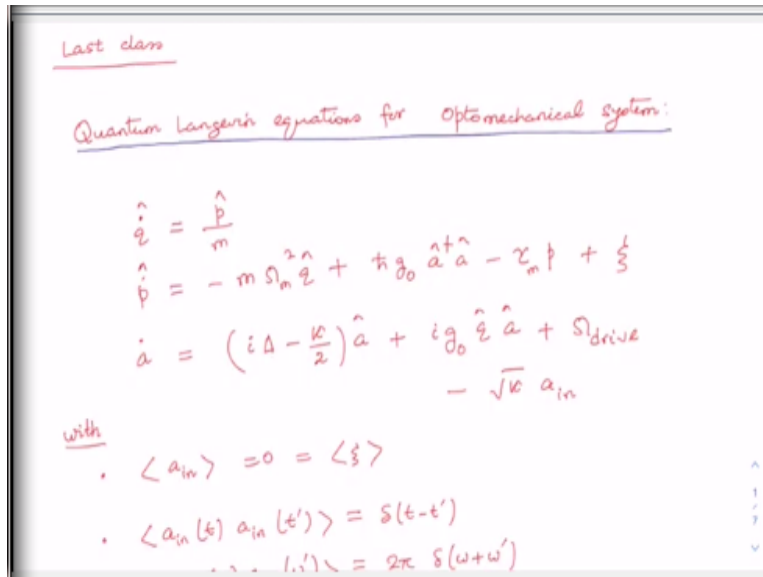 Last class
Quantum Langevin equations for Optomechanical system:
\dot{\hat{q}} = \frac{\hat{p}}{m}
\dot{\hat{p}} = - m Ω_m^2 \hat{q} + ħ g_0 \hat{a}^† \hat{a} - γ_m p + ξ
\dot{a} = (iΔ - \frac{κ}{2}) \hat{a} + i g_0 \hat{q} \hat{a} + Ω_{drive}
- √κ a_{in}
with
· ⟨a_{in}⟩ = 0 = ⟨ξ⟩
· ⟨a_{in}(t) a_{in}(t')⟩ = δ(t-t')
(ω')⟩ = 2π δ(ω+ω')